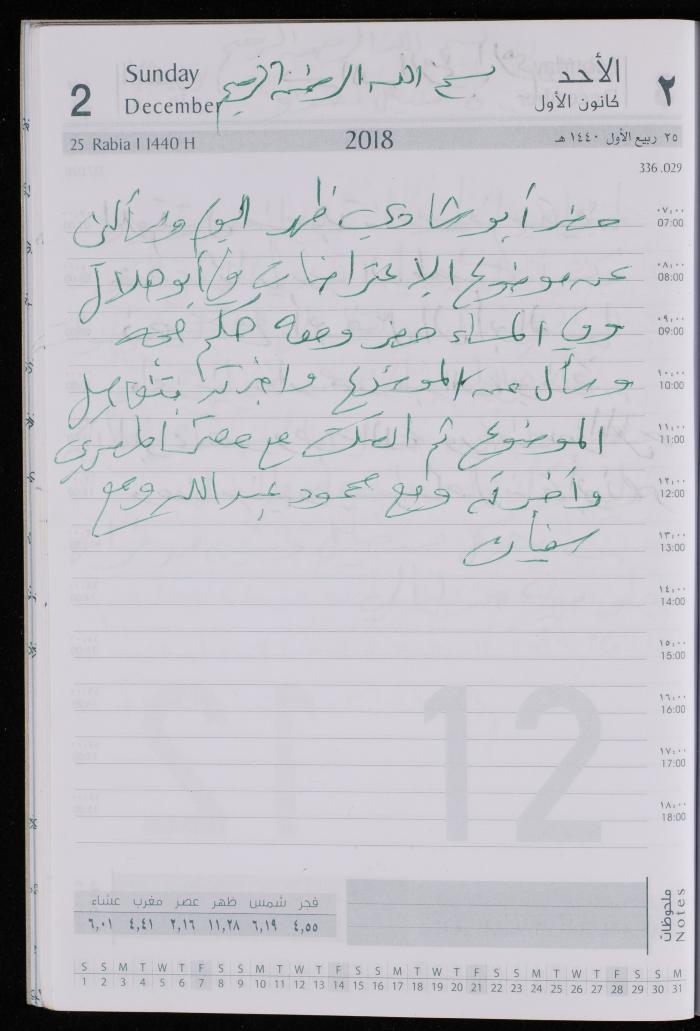 Sunday
2
December
بسم الله الرحمن الرحيم
الأحد
٢
كانون الأول
25 Rabia I 1440 H
2018
٢٥ ربيع الأول ١٤٤٠ هـ
336.029
٠٧:٠٠
07:00
حضر أبو شادي ظهر اليوم وسألني
٠٨:٠٠
08:00
عن موضوع الاعتراضات و أبو هلال
٠٩:٠٠
09:00
وفي المساء حضر ومعه حكم
١٠:٠٠
10:00
وسأل عن الموضوع وأخبرته بتفاصيل
١١:٠٠
11:00
الموضوع ثم مع المصري
١٢:٠٠
12:00
وأخبرته ومع محمود عبد الله ومع
١٣:٠٠
13:00
سفيان
١٤:٠٠
14:00
١٥:٠٠
15:00
١٦:٠٠
16:00
١٧:٠٠
17:00
١٨:٠٠
18:00
12
فجر شمس ظهر عصر مغرب عشاء
٤,٥٥ ٦,١٩ ١١,٢٨ ٢,١٦ ٤,٤١ ٦,٠١
ملحوظات
Notes
S S M T W T F S S M T W T F S S M T W T F S S M T W T F S S M
1 2 3 4 5 6 7 8 9 10 11 12 13 14 15 16 17 18 19 20 21 22 23 24 25 26 27 28 29 30 31